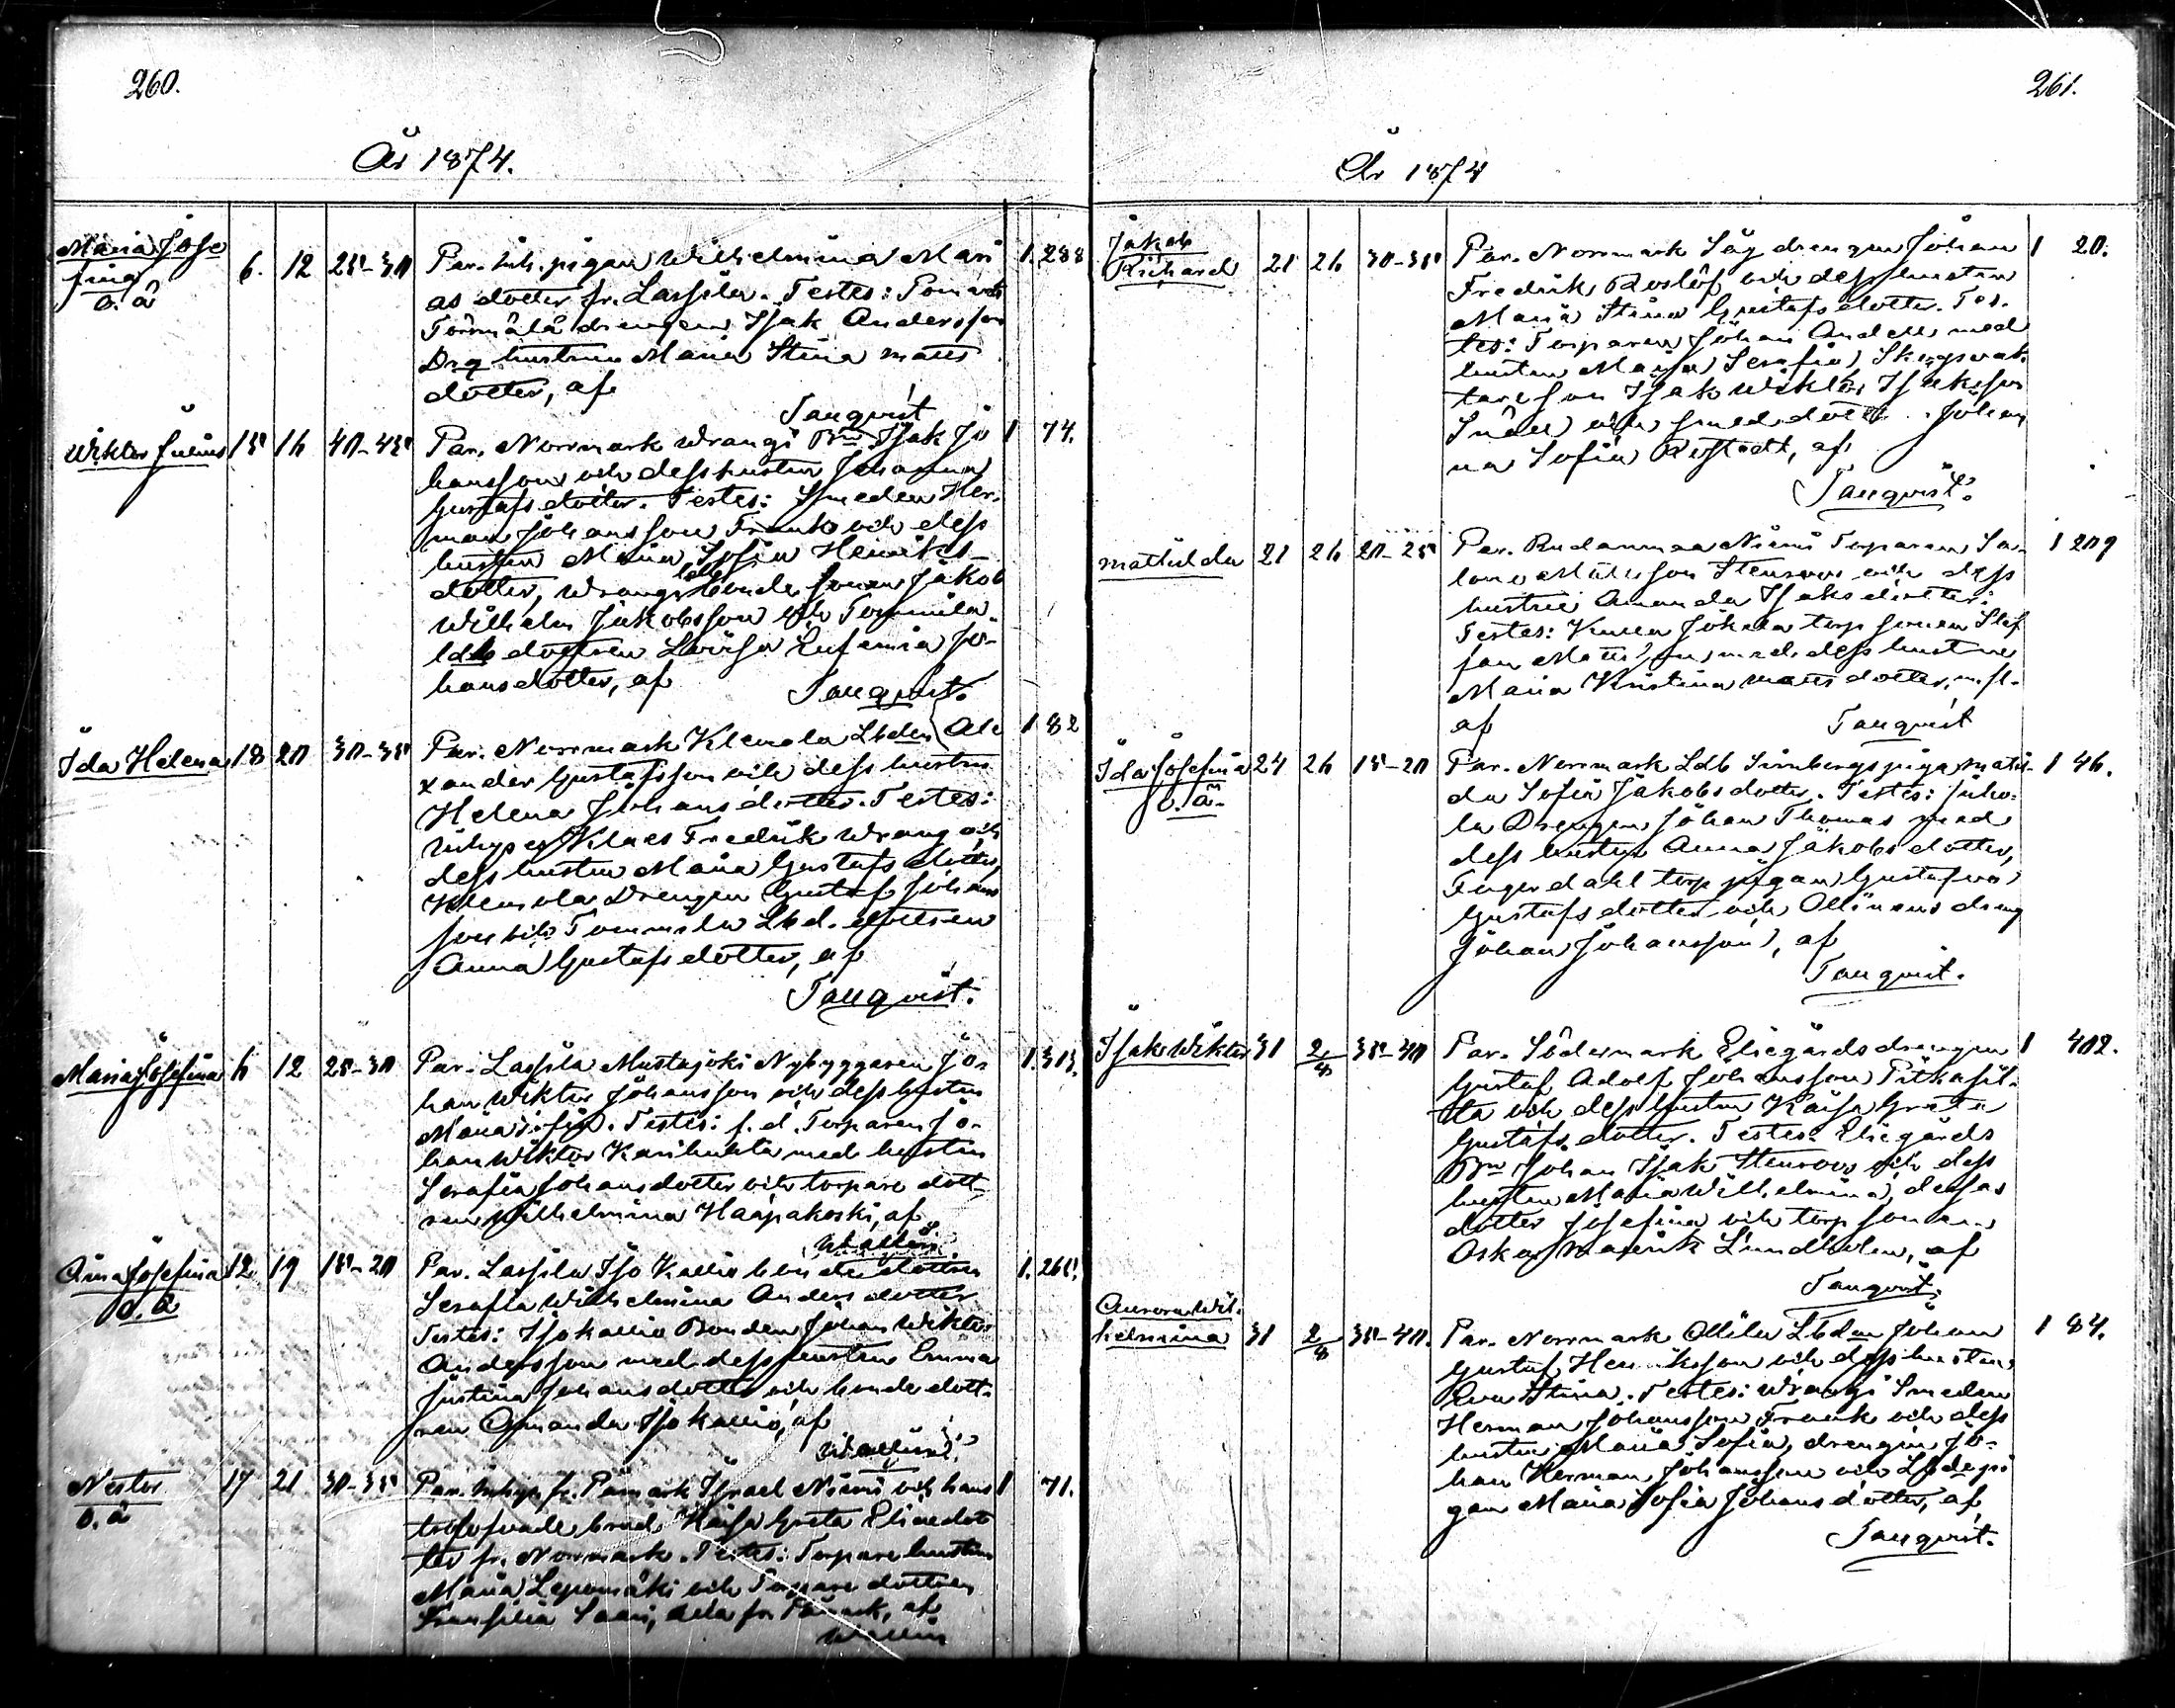 260.
År 1874.
Maria Jose
fina
o. ä
6. 12 25-30 Par. Inh. pigan Wilhelmina Mari 1. 288
as dotter fr. Lassila. Testes: Pomark
Torrmälä drengen Isak Andersson
Drg hustrun Maria Stina Matts
dotter, af
Tanqvist
Wiktor Julius 15 16 40-45 Par. Norrmark Wrangi Bn Isak Jo 1 74.
hansson och dess hustru Johanna
Gustafsdotter. Testes: Smeden Her-
man Johansson Frank och dess
hustru Maria Sofia Henriks-
dotter, Wrangi bonde sonen Jakob
Wilhelm Jakobsson och Tommila
ldb dottren Lovisa Eufemia Jo-
hansdotter, af
Tanqvist.
Ida Helena 18 20 30-35 Par. Norrmark Klemola Lbden Ale 1 82
xander Gustafsson och dess hustru
Helena Johansdotter. Testes:
Klaes Fredrik Wrang och
dess hustru Maria Gustafsdotter,
Klemola Drengen Gustaf Johans
son och Tommila Lbd. dottren
Anna Gustafsdotter, af
Tanqvist.
Maria Josefina 6 12 25-30 Par. Lassila Mustajoki Nybyggaren Jo- 1. 313.
han Wiktor Johansson och dess hustru
Maria Sofia. Testes: f. d. Torparen Jo-
han Wiktor Karihuhta med hustru
Serafia Johansdotter och torpare dott-
ren Wilhelmina Haapakoski, af
Wallin
Josefina 12 19 15-20 Par. Lassila Iso Kallio bonde dottren 1. 265.
o. ä
Serafia Wilhelmina Andersdotter
Testes: Isokallio Bonden Johan Wiktor
Andersson med dess hustru Emma
Justina Johansdotter och bonde dott-
ren Amanda Isokallio, af
Wallin
Nestor 17 21 30-35 Par. Inhys fr. Påmark Israel Niemi och hans 1 71.
o. ä
trolofvade brud Kaisa Greta Eliedot
ter fr. Norrmark. Testes: Torpare hustrun
Maria Lepomäki och Torpare dottren
Saari, fr. Påmark, af
Wallin
261.
År 1874
Jakob
Richard 21 26 30-35 Par. Norrmark Såg drengen Johan 1 20.
Fredrik Roslöf och dess hustru
Maria Stina Gustafsdotter. Tes-
tes: Torparen Johan Andell med
hustru Maria Serafia, Skogsvak-
tare son Isak Wiktor Isaksson
och smed dotter Johan
na Sofia, af
Tanqvist.
Mattilda 21 26 20-25 Par. Rudanmaa Niemi Torparen Sa- 1 209
lomo Mattsson Stenroos och dess
hustru Amanda Isaksdotter.
Testes: torp sonen Stef
fan Mattsson, med dess hustru
Maria Kristina Mattsdotter, m. fl.
af Tanqvist
Ida Josefina 24 26 15-20 Par. Norrmark Ldb piga Matil- 1 46.
o. ä.
da Sofia Jakobsdotter. Testes: Juho-
la Drengen Johan Thomas med
dess hustru Anna Jakobsdotter,
Fingerdahl torp pigan Gustafva
Gustafsdotter och dreng
Johan Johansson, af
Tanqvist.
Isak Wiktor 31 2/8 35-40 Par. Södermark Eliegårds drengen 1 402.
Gustaf Adolf Johansson Pitkäsil-
ta och dess hustru Kaisa Greta
Gustafsdotter. Testes: Eliegårds
Bn Johan Isak Stenroos och dess
hustru Maria Wilhelmina, dessas
dotter Josefina och torp sonen
Oskar Maurik Lindholm, af
Tanqvist.
Aurora Wil-
helmina 31 2/8 35-40. Par. Norrmark Ollila Lbden Johan 1 84.
Gustaf Henriksson och dess hustru
Eva Stina. Testes: Wrangi Smeden
Herman Johansson Frank och dess
hustru Maria Sofia, drengen Jo-
han Herman Johansson och Lbds pi
gan Maria Sofia Johansdotter, af
Tanqvist.